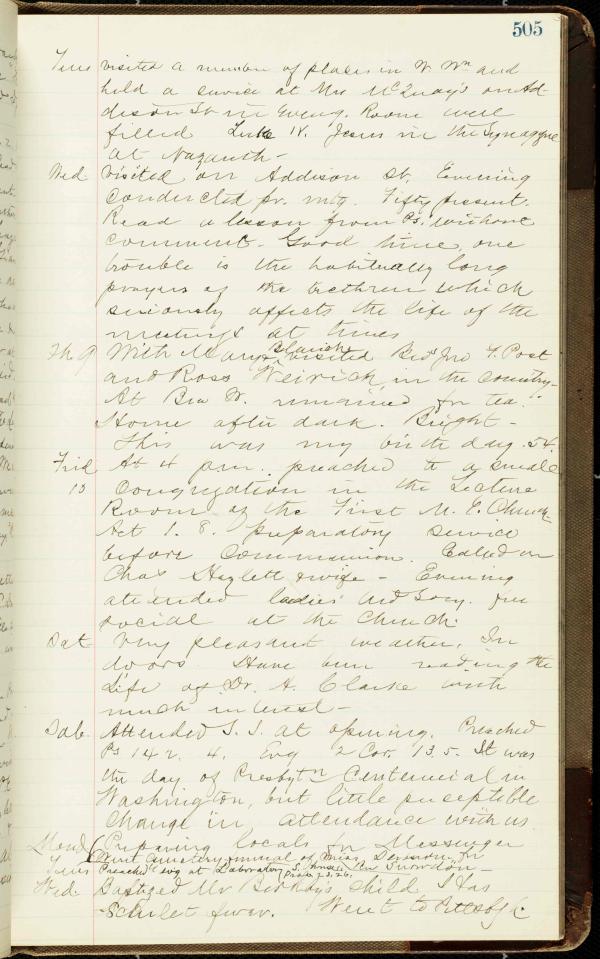 505
Tues visited a number of places in W. Wn and
held a service at Mrs McQuay's on Ad-
dison St in Eveng. Room well
filled Luke IV. Jesus in the Synagogue
at Nazareth -
Wed. Visited on Addison St. Evening
Conducted pr. mtg. Fifty present.
Read a lesson from Ps. without
comment. Good time, one
trouble is the habitually long
prayers of the brethren which
seriously affects the life of the
meetings at times
Th. 9 With Mary Blanch visited Bros Jno Y. Post
and Ross Weirich, in the country -
At Bro W. remained for tea.
Home after dark. Bright -
This was my birth day. 54.
Frid At 4 p.m. preached to a small
10 Congregation in the Lecture
Room of the First M. E. Church
Act 1. 8. preparatory service
before Communion. Called on
Chas Hazlett & wife - Evening
attended ladies Aid Socy. free
social at the Church.
Sat. Very pleasant weather. In
doors. Have been reading the
Life of Dr. A. Clarke with
much interest -
Sab. Attended S. S. at opening. Preached
Ps 142. 4. Evg 2 Cor. 13.5. It was
the day of Presbytn Centennial in
Washington, but little susceptible
change in attendance with us
Mond Preparing locals for Messenger
Went Cemetery funeral of Miss
Tues Preached evg at Laboratory S. house
Wed. Baptized Mr child. Has
Scarlet fever. Went to Pittsbg